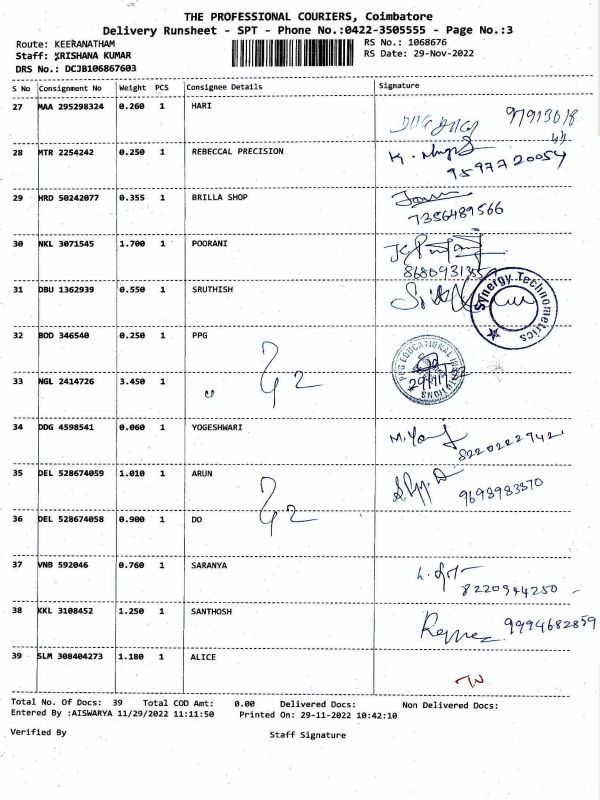 THE PROFESSIONAL COURIERS, Coimbatore
Delivery Runsheet - SPT - Phone No.:0422-3505555 - Page No.:3
Route: KEERANATHAM
RS No.: 1068676
Staff: KRISHANA KUMAR
RS Date: 29-Nov-2022
DRS No.: DCJB106867603
S No Consignment No Weight PCS Consignee Details Signature
27 MAA 295298324 0.260 1 HARI
28 MTR 2254242 0.250 1 REBECCAL PRECISION
9597720054
29 HRD 50242077 0.355 1 BRILLA SHOP
7356489566
30 NKL 3071545 1.700 1 POORANI
31 DBU 1362939 0.550 1 SRUTHISH
Synergy Technometrics
32 BOD 346540 0.250 1 PPG
PPG EDUCATIONAL INSTITUTIONS
33 NGL 2414726 3.450 1 "
34 DDG 4598541 0.060 1 YOGESHWARI
35 DEL 528674059 1.010 1 ARUN
9693983370
36 DEL 528674058 0.900 1 DO
37 VNB 592046 0.760 1 SARANYA
8220944250
38 KKL 3108452 1.250 1 SANTHOSH
9994682859
39 SLM 308404273 1.180 1 ALICE
Total No. Of Docs: 39 Total COD Amt: 0.00 Delivered Docs: Non Delivered Docs:
Entered By :AISWARYA 11/29/2022 11:11:50 Printed On: 29-11-2022 10:42:10
Verified By Staff Signature